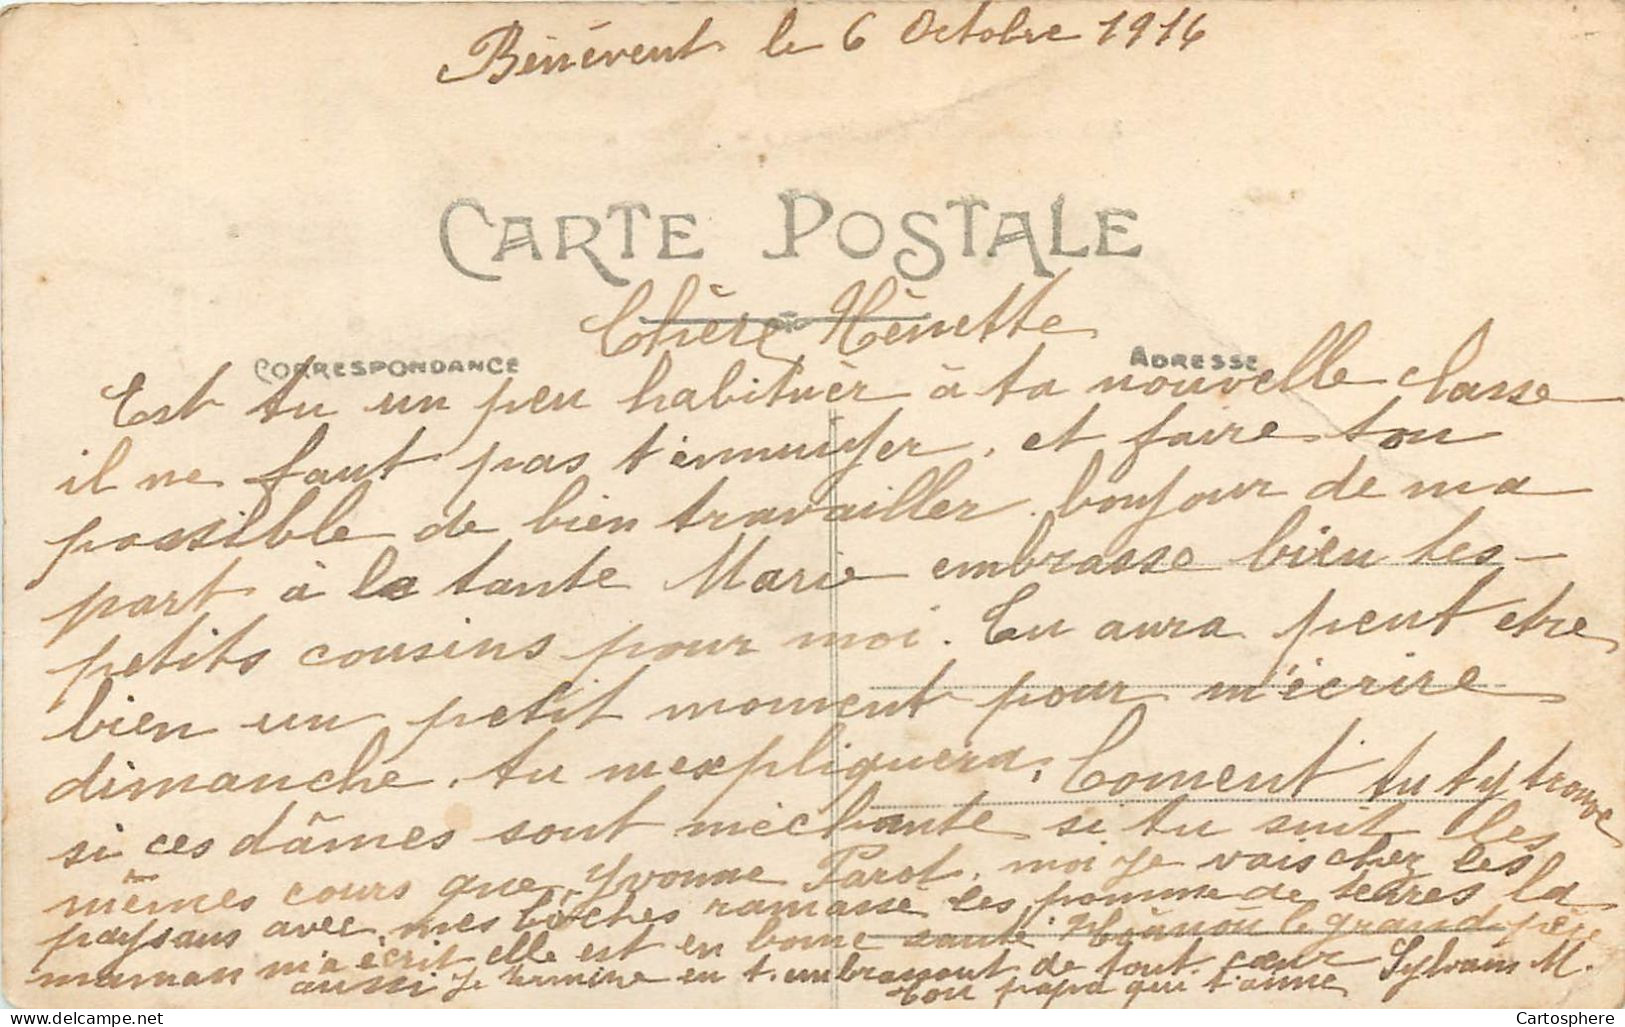 Bénévent le 6 Octobre 1916
CARTE POSTALE
Chère Hènette
CORRESPONDANCE
ADRESSE
Est tu un peu habituèr à ta nouvelle classe
il ne faut pas t'ennuiyer, et faire ton
possible de bien travailler. bonjour de ma
part à la tante Marie embrasse bien tes
petits cousins pour moi. Tu aura peut etre
bien un petit moment pour m'écrire
dimanche, tu mexpliquera, Coment tu ty trouve
si ces dâmes sont mèchante si tu suit les
mêmes cours que Yvonne Parot, moi je vais chez les
paysans avec mes boches ramasse les pomme de terres la
maman m'a écrit elle est en bonne santé le grand-père
aussi je termine en t'embrassant de tout cœur Sylvain M.
Ton papa qui t'aime
Cartosphere
www.delcampe.net